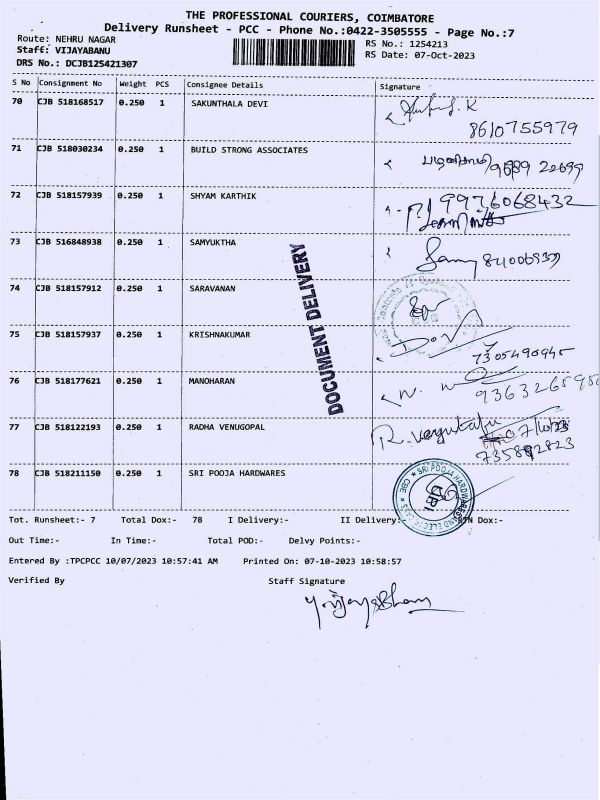 THE PROFESSIONAL COURIERS, COIMBATORE
Delivery Runsheet - PCC - Phone No.:0422-3505555 - Page No.:7
Route: NEHRU NAGAR
RS No.: 1254213
Staff: VIJAYABANU
RS Date: 07-Oct-2023
DRS No.: DCJB125421307
S No Consignment No Weight PCS Consignee Details Signature
70 CJB 518168517 0.250 1 SAKUNTHALA DEVI
8610755979
71 CJB 518030234 0.250 1 BUILD STRONG ASSOCIATES
72 CJB 518157939 0.250 1 SHYAM KARTHIK 9976068432
73 CJB 516848938 0.250 1 SAMYUKTHA
74 CJB 518157912 0.250 1 SARAVANAN
75 CJB 518157937 0.250 1 KRISHNAKUMAR
7305490945
76 CJB 518177621 0.250 1 MANOHARAN
77 CJB 518122193 0.250 1 RADHA VENUGOPAL R. Venugopal
78 CJB 518211150 0.250 1 SRI POOJA HARDWARES
DOCUMENT DELIVERY
SRI POOJA HARDWARES
CBE
Tot. Runsheet:- 7 Total Dox:- 78 I Delivery:- II Delivery:- RTN Dox:-
Out Time:- In Time:- Total POD:- Delvy Points:-
Entered By :TPCPCC 10/07/2023 10:57:41 AM Printed On: 07-10-2023 10:58:57
Verified By Staff Signature